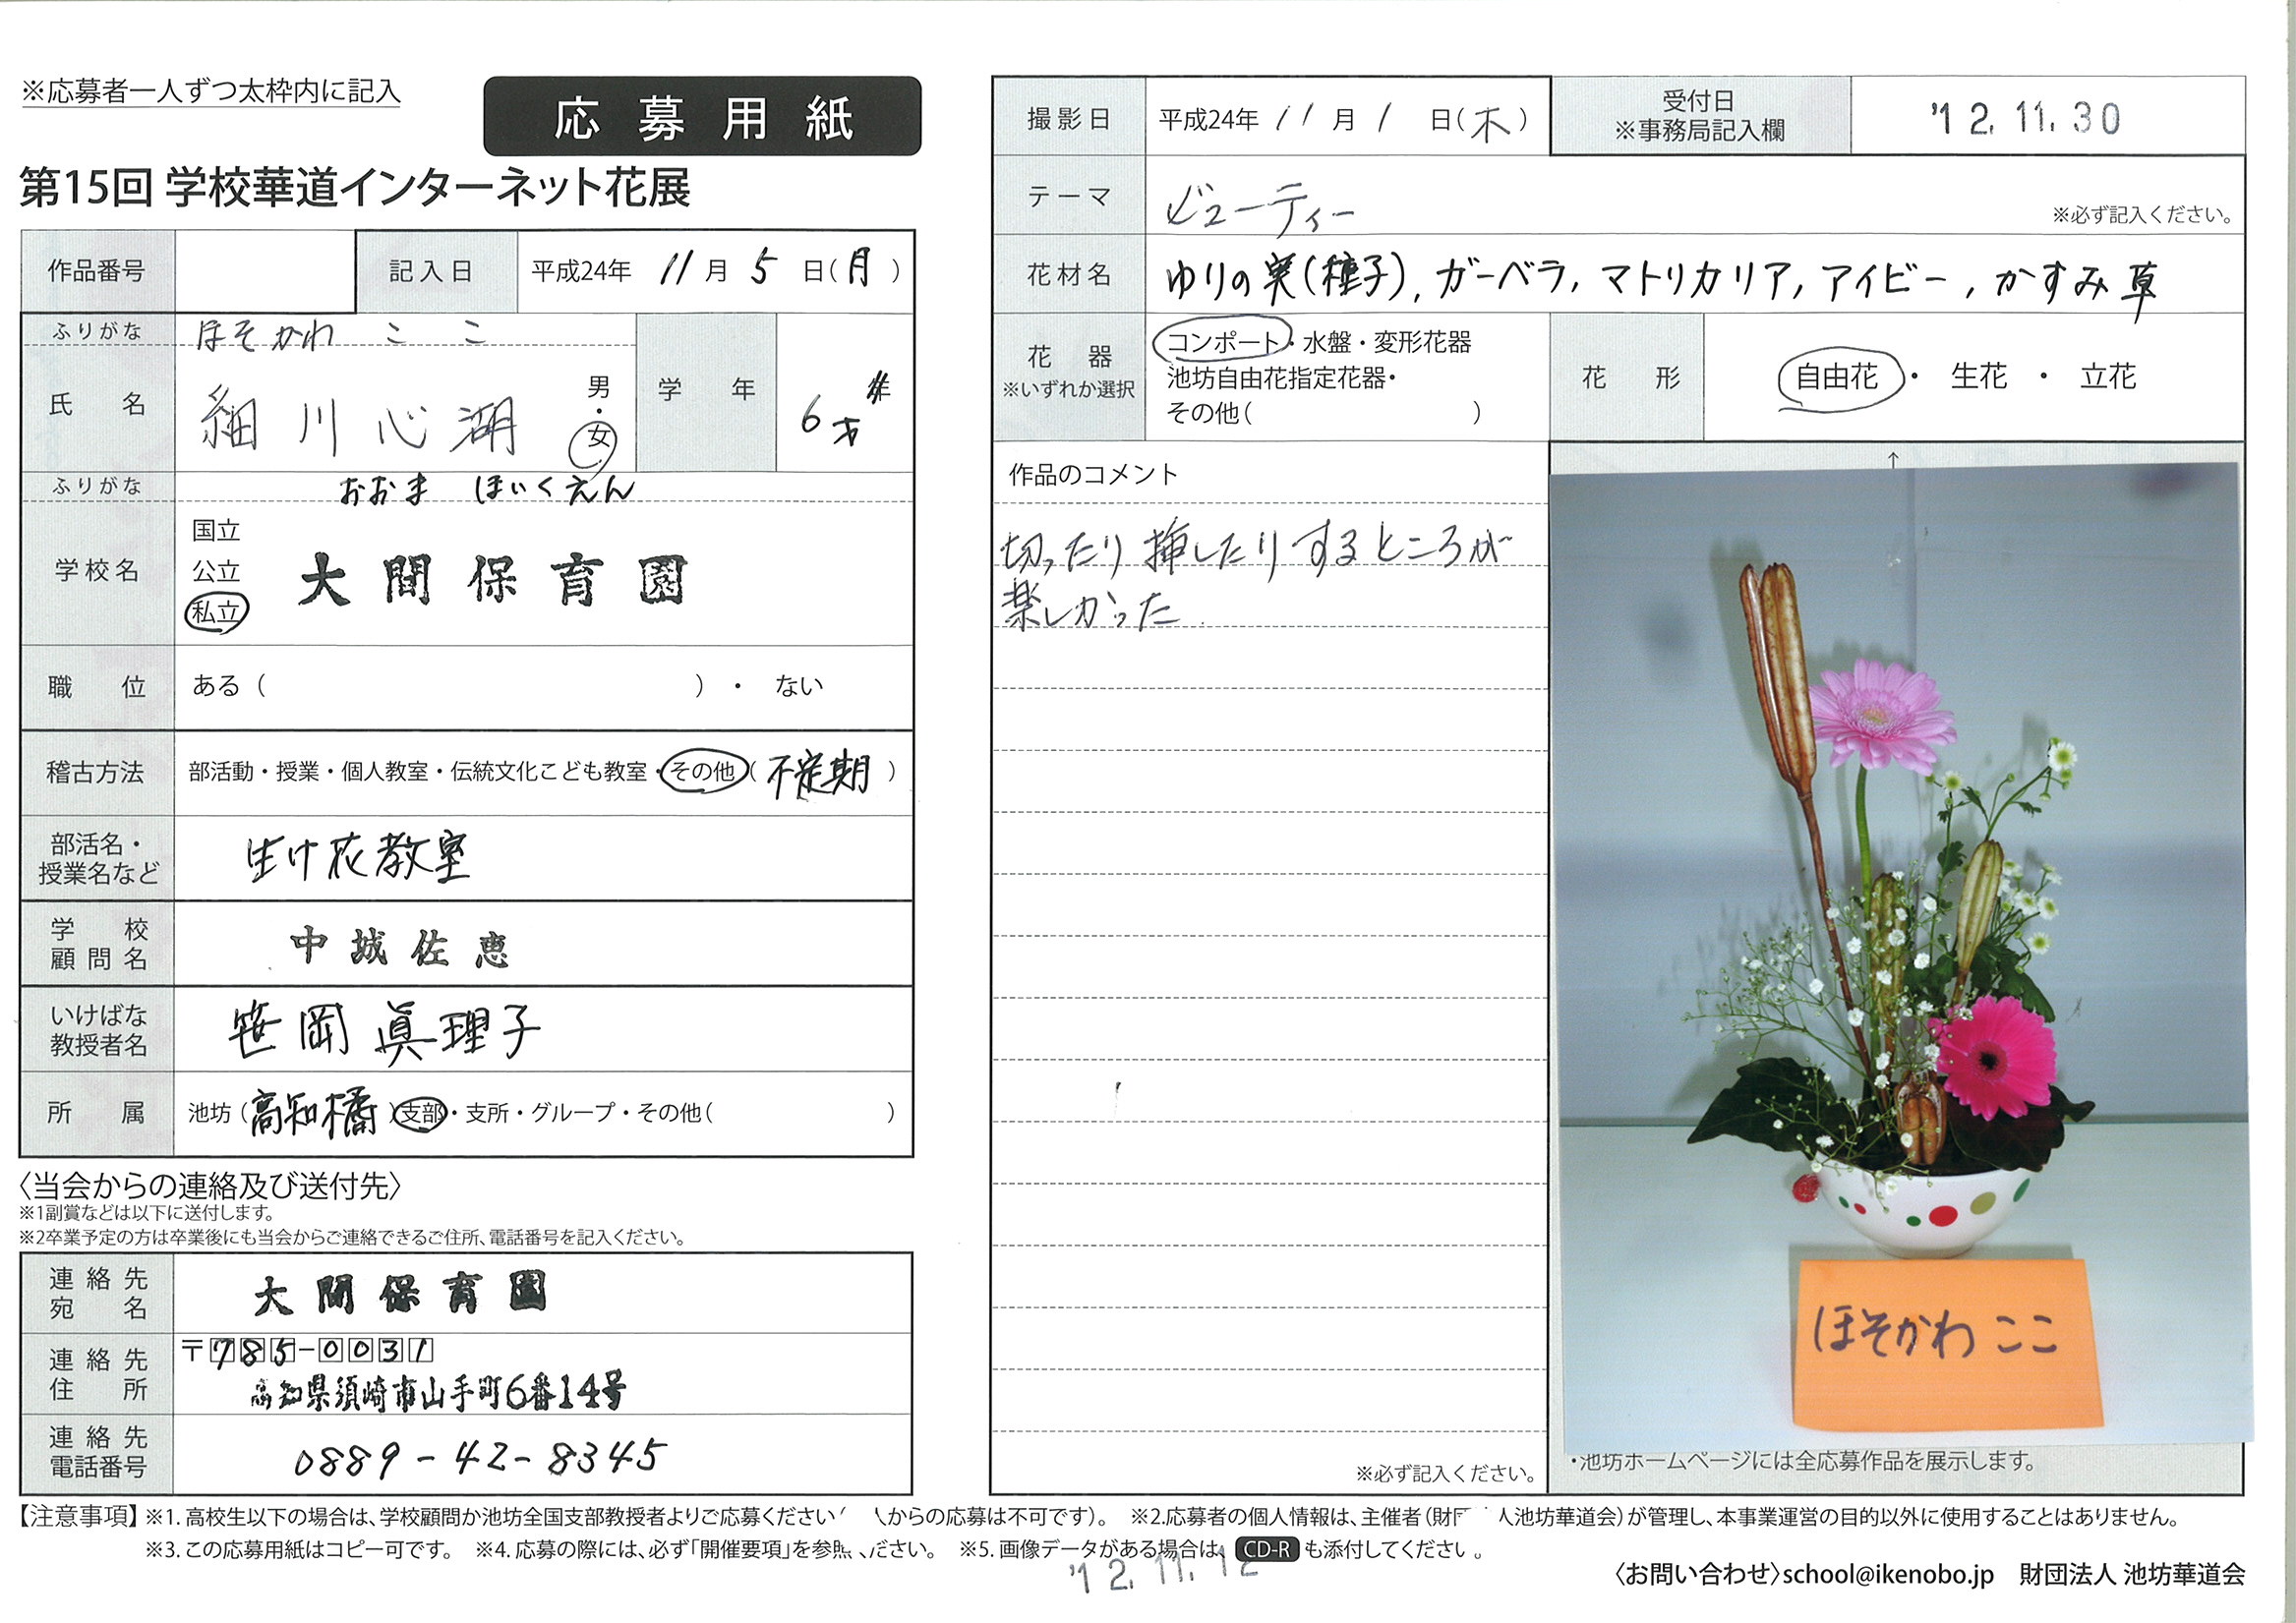 ※応募者一人ずつ太枠内に記入
応募用紙
第15回 学校華道インターネット花展
作品番号
記入日 平成24年 11月 5日(月)
ふりがな ほそかわ ここ
氏名 細川心湖 男・女
学年 6才
ふりがな おおま ほいくえん
学校名 国立 公立 私立 大間保育園
職位 ある( )・ ない
稽古方法 部活動・授業・個人教室・伝統文化こども教室・その他(不定期)
部活名・授業名など 生け花教室
学校顧問名 中城佐恵
いけばな教授者名 笹岡眞理子
所属 池坊(高知橘)支部・支所・グループ・その他( )
〈当会からの連絡及び送付先〉
※1副賞などは以下に送付します。
※2卒業予定の方は卒業後にも当会からご連絡できるご住所、電話番号を記入ください。
連絡先宛名 大間保育園
連絡先住所 〒785-0031
高知県須崎市山手町6番14号
連絡先電話番号 0889-42-8345
撮影日 平成24年 11月 1日(木)
受付日 ※事務局記入欄 '12.11.30
テーマ ビューティー ※必ず記入ください。
花材名 ゆりの実(種子), ガーベラ, マトリカリア, アイビー, かすみ草
花器 ※いずれか選択
コンポート・水盤・変形花器
池坊自由花指定花器・
その他( )
花形 自由花・生花・立花
作品のコメント
切ったり挿したりするところが
楽しかった
※必ず記入ください。
↑
ほそかわ ここ
・池坊ホームページには全応募作品を展示します。
【注意事項】※1. 高校生以下の場合は、学校顧問か池坊全国支部教授者よりご応募ください 人からの応募は不可です)。 ※2.応募者の個人情報は、主催者(財団 人池坊華道会)が管理し、本事業運営の目的以外に使用することはありません。
※3. この応募用紙はコピー可です。 ※4. 応募の際には、必ず「開催要項」を参照ください。 ※5. 画像データがある場合は、CD-Rも添付してください。
'12.11.12
〈お問い合わせ〉school@ikenobo.jp 財団法人 池坊華道会